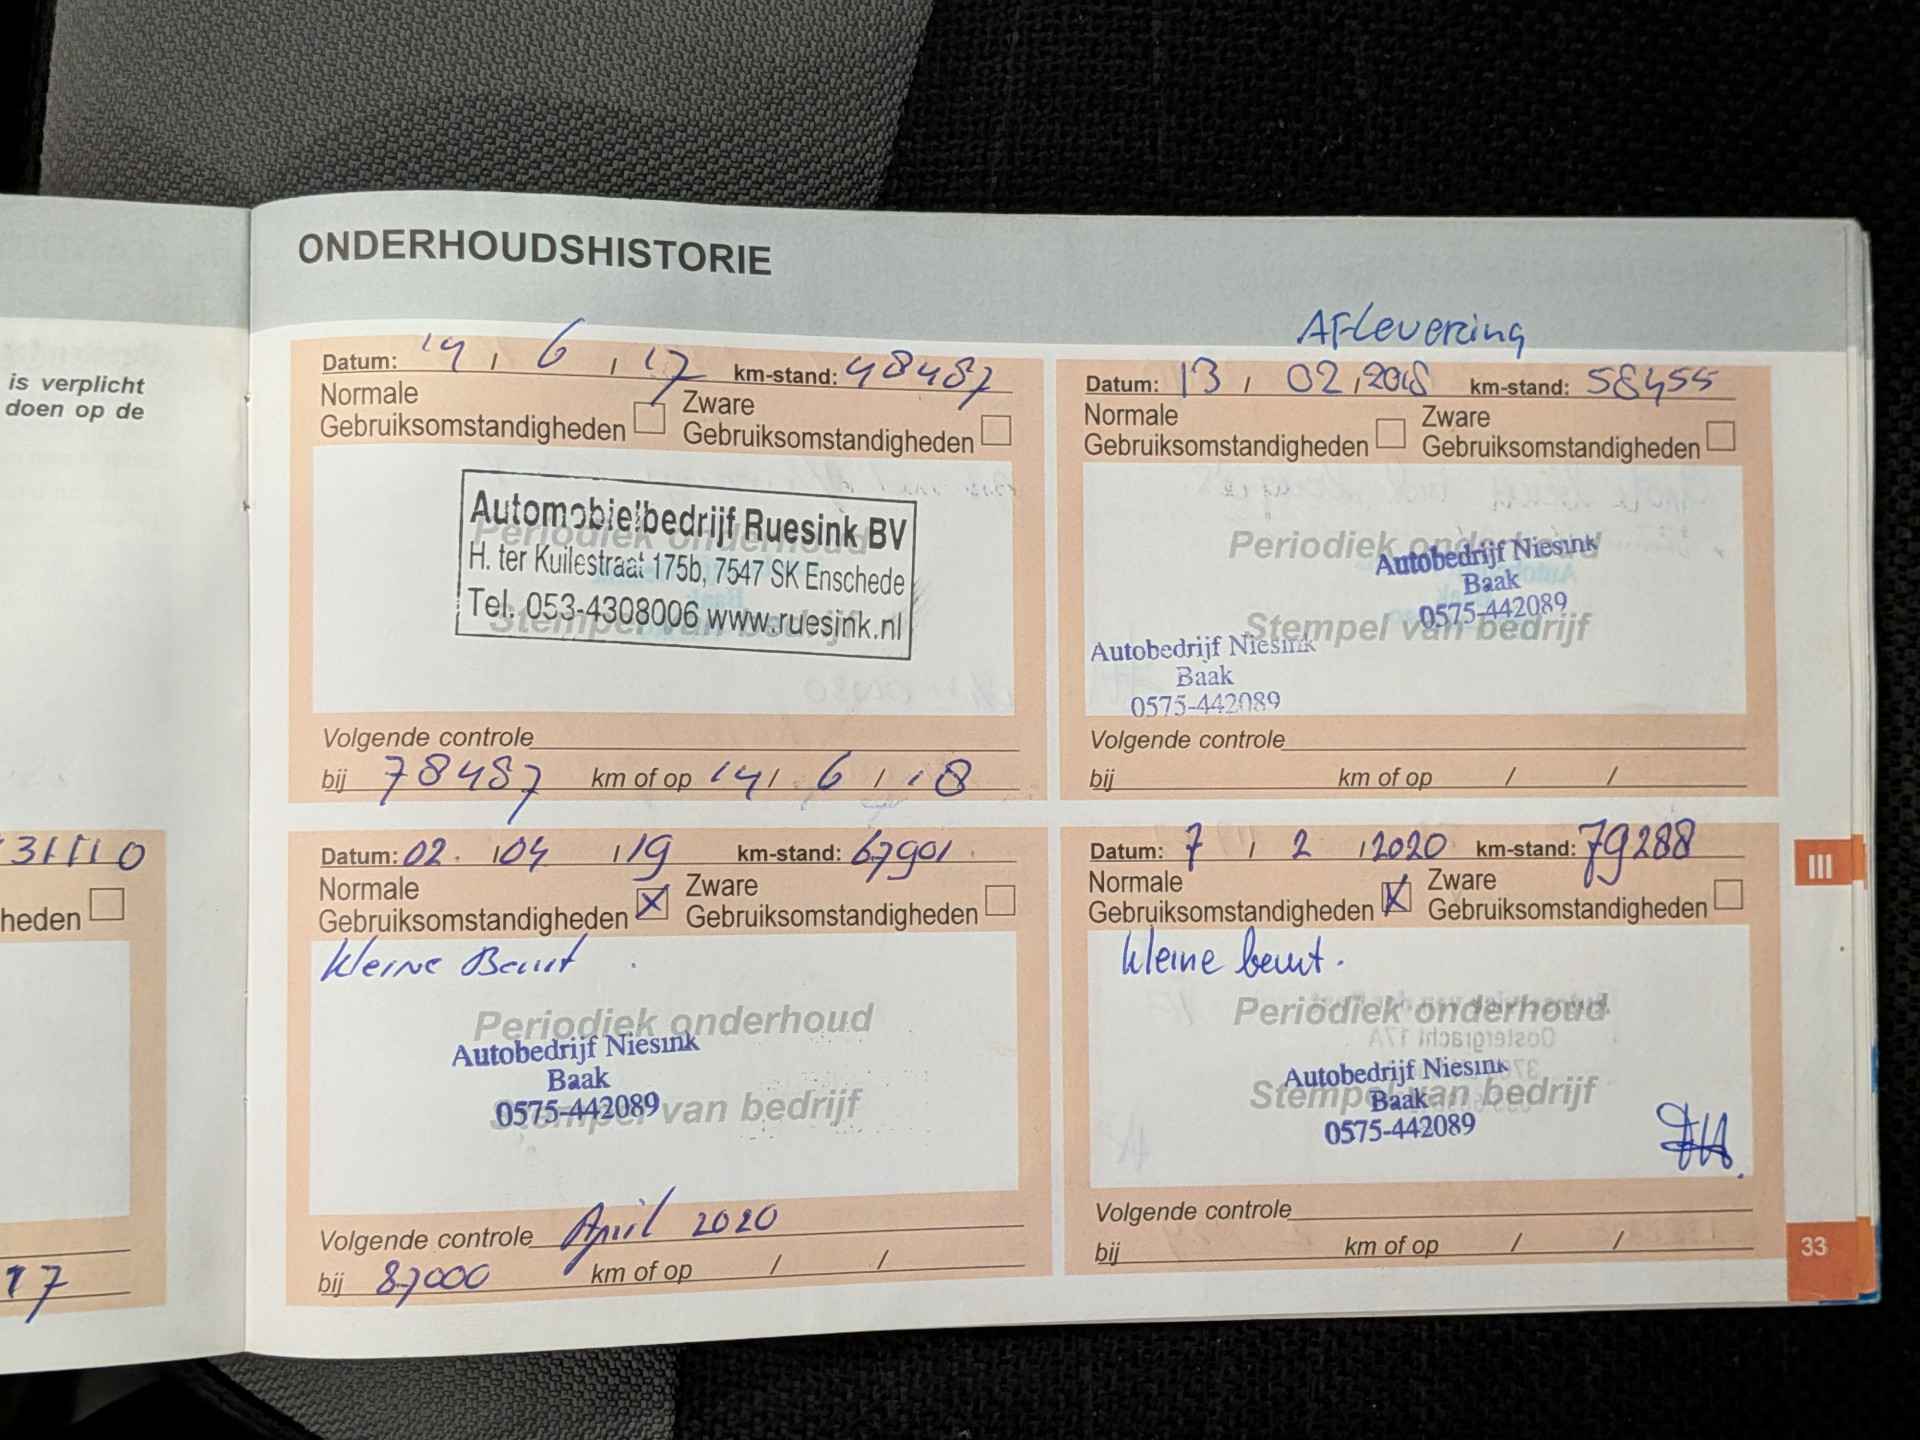 is verplicht
doen op de
heden
17
ONDERHOUDSHISTORIE
Datum: 14 / 6 / 17 km-stand: 48487
Normale
Gebruiksomstandigheden
Zware
Gebruiksomstandigheden
Automobielbedrijf Ruesink BV
H. ter Kuilestraat 175b, 7547 SK Enschede
Tel. 053-4308006 www.ruesink.nl
Periodiek onderhoud
Stempel van bedrijf
Volgende controle
bij 78487 km of op 14 / 6 / 18
Aflevering
Datum: 13 / 02 / 2018 km-stand: 58455
Normale
Gebruiksomstandigheden
Zware
Gebruiksomstandigheden
Periodiek onderhoud
Autobedrijf Niesink
Baak
0575-442089
Stempel van bedrijf
Autobedrijf Niesink
Baak
0575-442089
Volgende controle
bij km of op / /
Datum: 02 / 04 / 19 km-stand: 67901
Normale
Gebruiksomstandigheden
Zware
Gebruiksomstandigheden
Kleine Beurt
Periodiek onderhoud
Autobedrijf Niesink
Baak
0575-442089
Stempel van bedrijf
Volgende controle April 2020
bij 87000 km of op / /
Datum: 7 / 2 / 2020 km-stand: 79288
Normale
Gebruiksomstandigheden
Zware
Gebruiksomstandigheden
kleine beurt.
Periodiek onderhoud
Autobedrijf Niesink
Baak
0575-442089
Stempel van bedrijf
Volgende controle
bij km of op / /
III
33